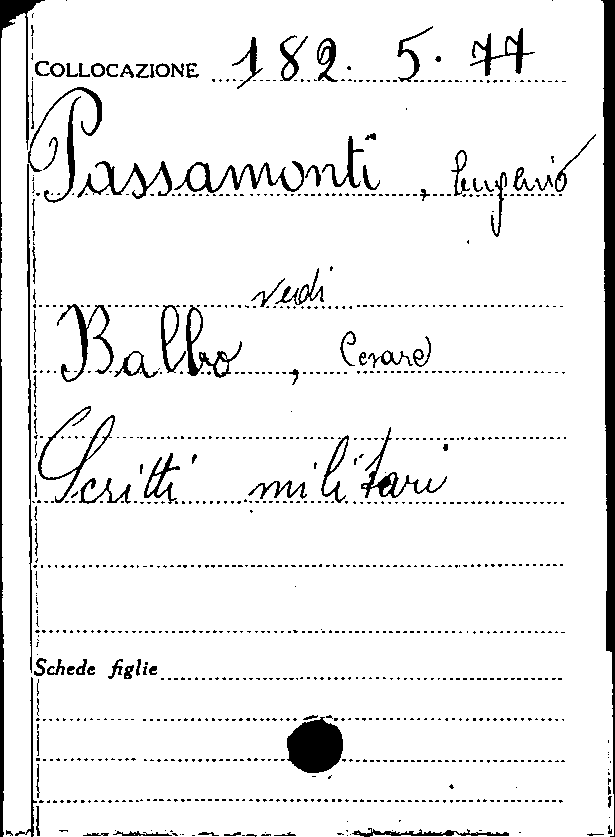 COLLOCAZIONE 182. 5. 77
Passamonti, Eugenio
vedi
Balbo, Cesare
Scritti militari
Schede figlie